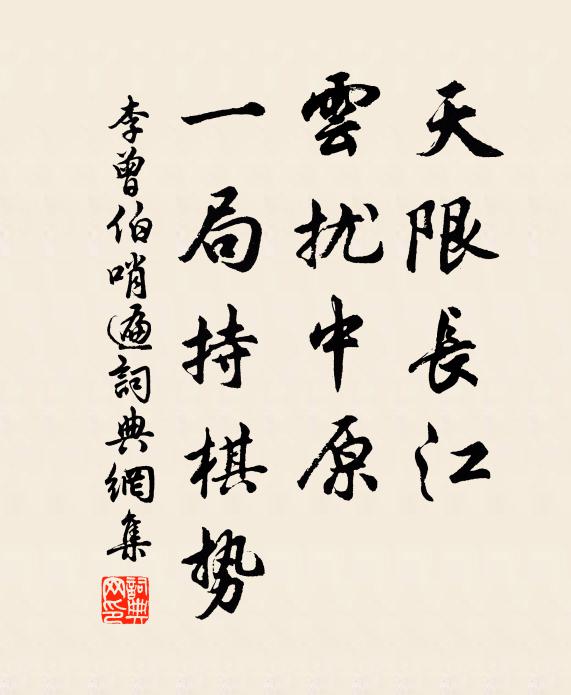 天限長江
雲扰中原
一局持棋势
李曾伯哨遍詞典網集
詞典网印